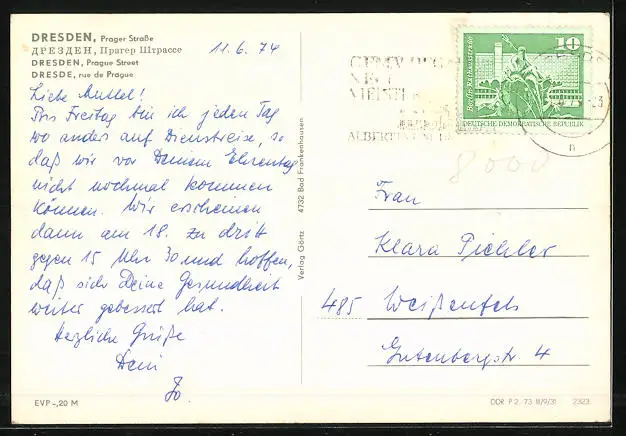 DRESDEN, Prager Straße
ДРЕЗДЕН, Прагер Штрассе
DRESDEN, Prague Street
DRESDE, rue de Prague
11.6.74
Liebe Muttel!
Bis Freitag bin ich jeden Tag
wo anders auf Dienstreise, so
daß wir vor Deinem Ehrentag
nicht nochmal kommen
können. Wir erscheinen
dann am 18. zu dritt
gegen 15 Uhr 30 und hoffen,
daß sich Deine Gesundheit
weiter gebessert hat.
Herzliche Grüße
Dein
Jo.
EVP -,20 M
Verlag Görtz 4732 Bad Frankenhausen
ALBERTINUM
Berlin, Rathausstraße
10
DEUTSCHE DEMOKRATISCHE REPUBLIK
n
8000
Frau
Klara Pichler
485 Weißenfels
Gutenbergstr. 4
DDR P 2. 73 III/9/31 2323